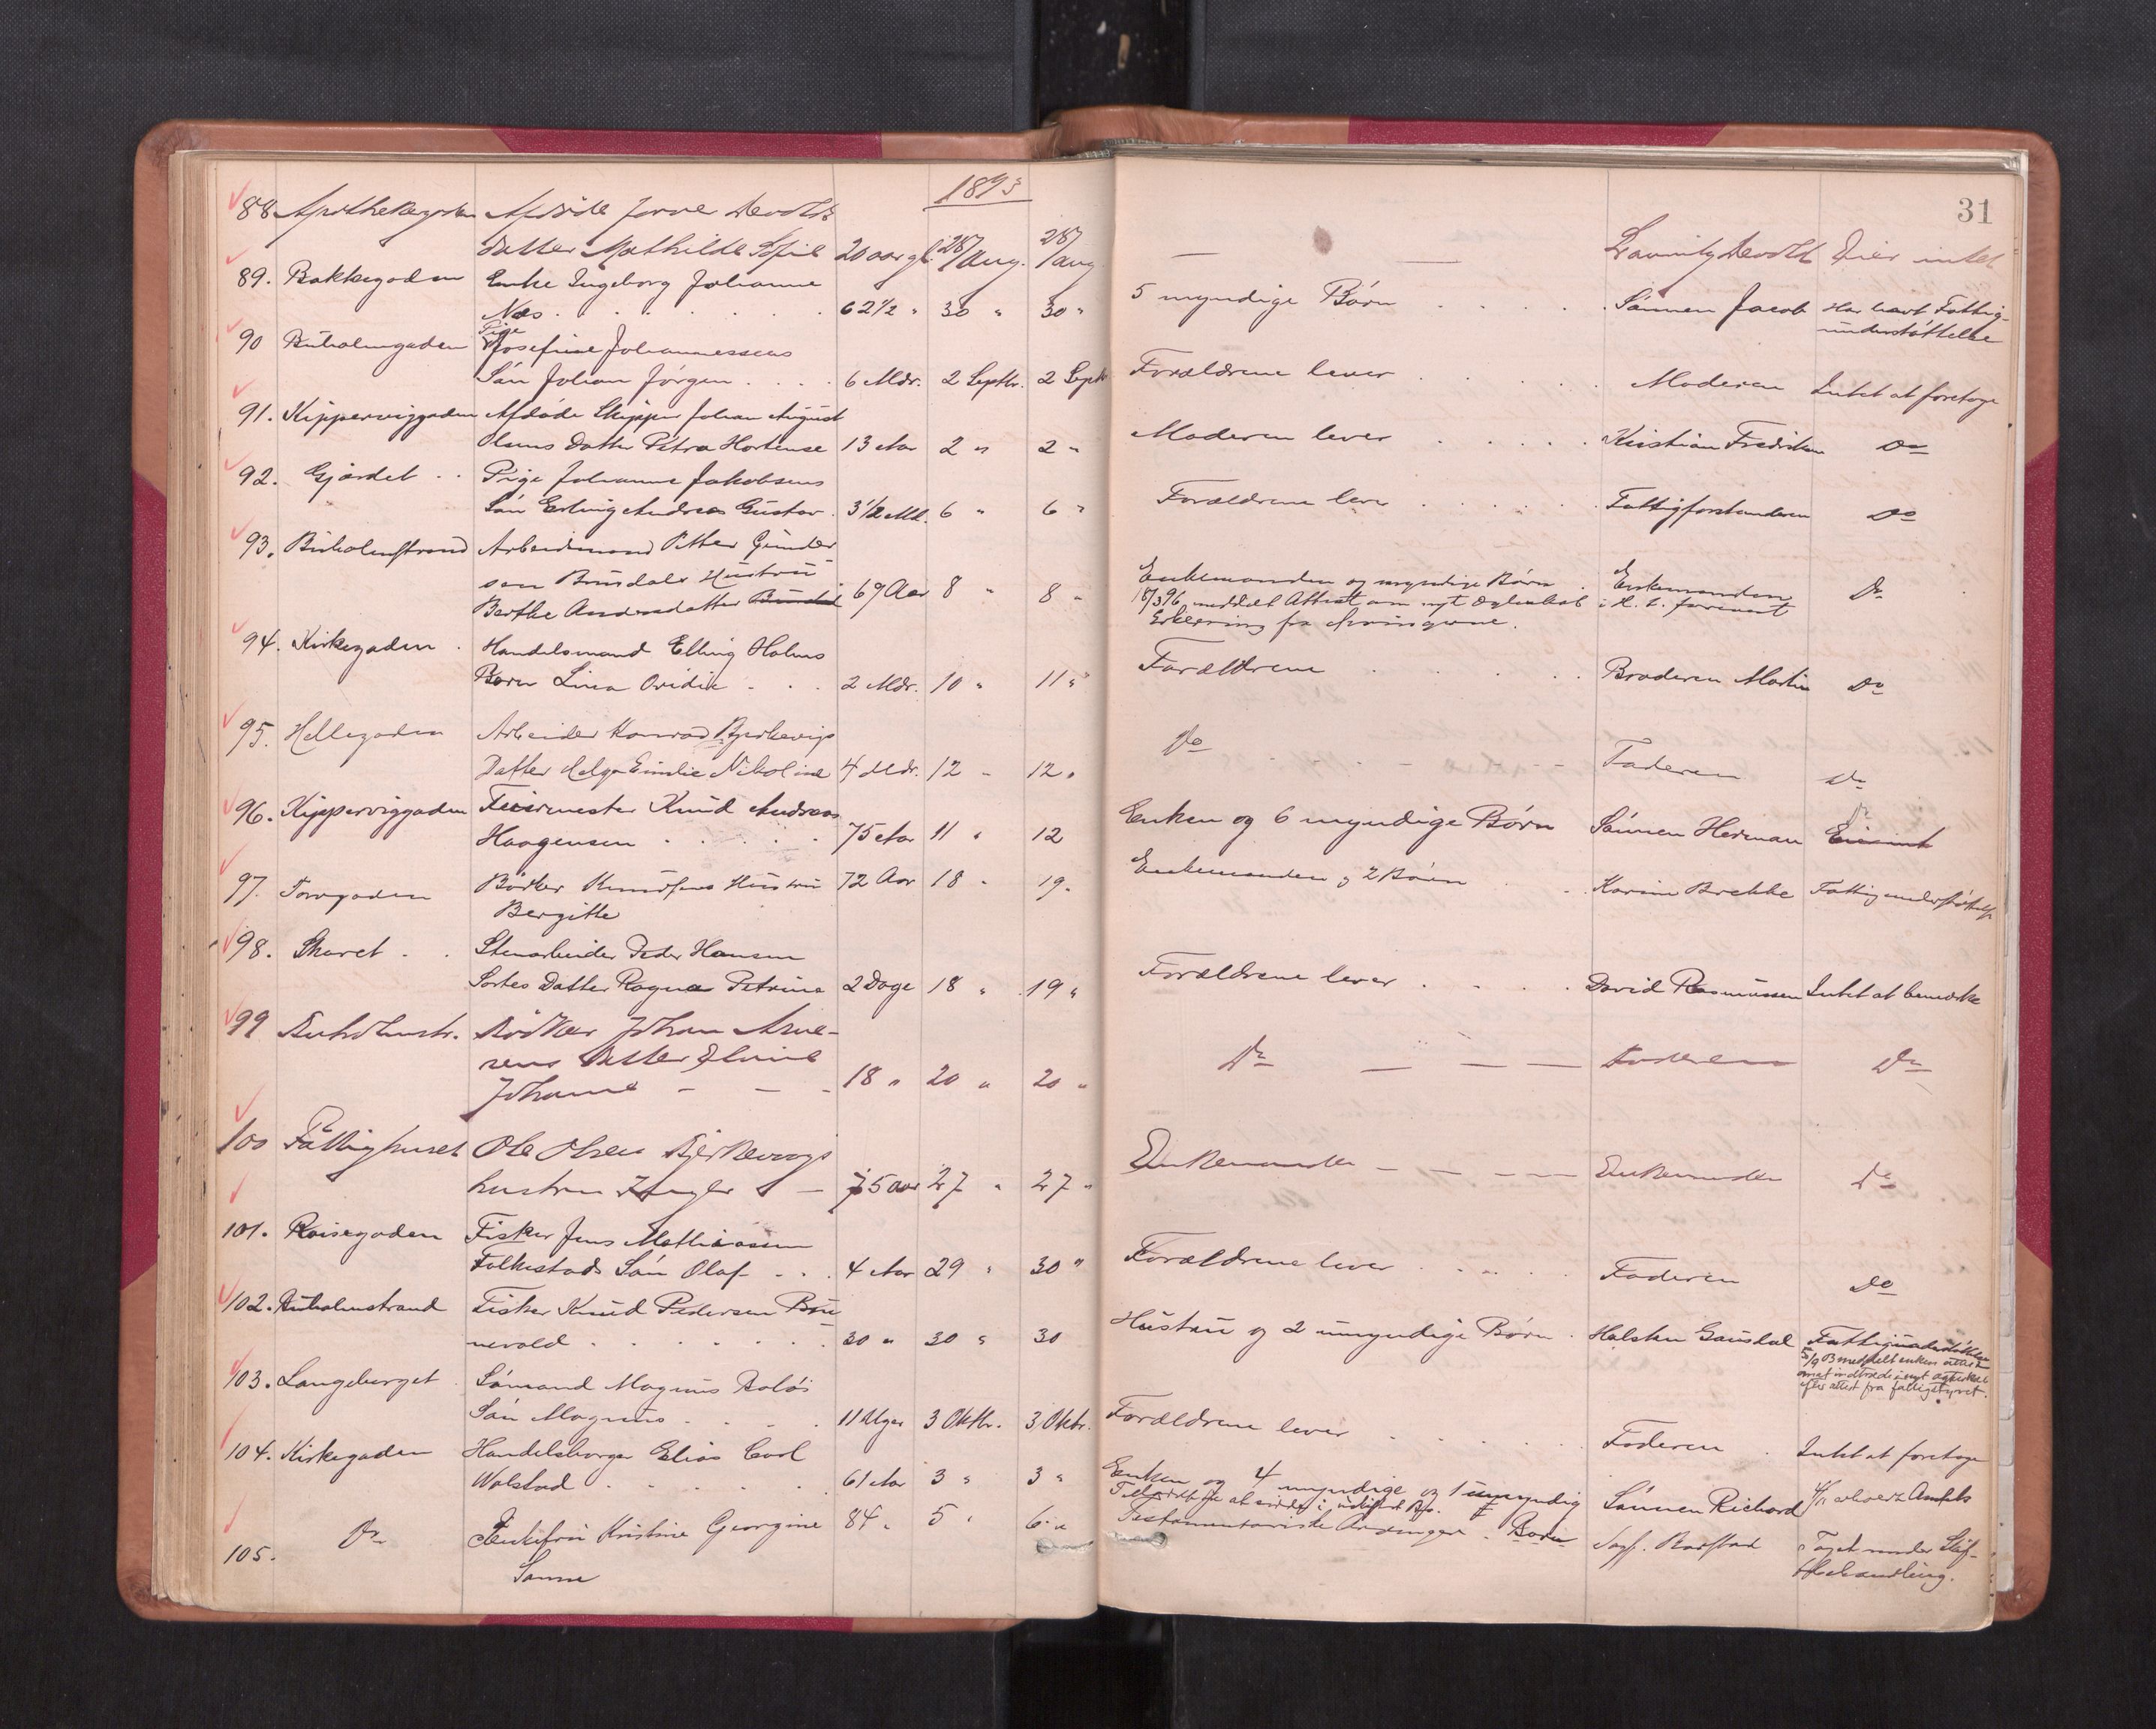 1895
31
88. Apothekergaden Afdøde Jørgen Devolds
Datter Mathilde Sofie 20 aar gl. 28/Aug. 28/aug — — Devold Eier intet
89. Bakkegaden Enke Ingeborg Johanne
Næs 62 1/2 " 30 " 30 " 5 myndige Børn Sønnen Jacob Har havt Fattig-
understøttelse
90 Buholmgaden Pige Josefine Johannessens
Søn Johan Jørgen 6 Mdr. 2 Septbr. 2 Septbr Forældrene lever Moderen Intet at foretage
91. Kipperviggaden Afdøde Skipper Johan August
Olsens Datter Petra Hortense 13 Aar 2 " 2 " Moderen lever Kristian Fredriksen Do
92. Gjørdet Pige Johanne Jakobsens
Søn Erling Andreas Gustav 3 1/2 Md. 6 " 6 " Forældrene lever Fattigforstanderen Do
93. Buholmstrand Arbeidsmand Petter Gunder
sen Brusdals Hustru
Berthe Andersdatter Brusdal 69 Aar 8 " 8 " Enkemanden og myndige Børn Enkemanden Do
18/3 96 meddelt Attest om nyt Ægteskab i H. t. foreviist
Erklæring fra Arvingerne.
94. Kirkegaden Handelsmand Elling Holms
Barn Lina Ovidie 2 Mdr. 10 " 11 " Forældrene Broderen Martin Do
95. Hellegaden Arbeider Konrad Bjerkevigs
Datter Helga Emilie Nikoline 4 Mdr. 12 " 12 " Do Faderen Do
96. Kipperviggaden Feiermester Knud Andreas
Haagensen 75 Aar 11 " 12 Enken og 6 myndige Børn Sønnen Herman Do
97. Torvgaden Bødker Knudsens Hustru 72 Aar 18 " 19 " Enkemanden og 2 Børn Karine Brekke Fattigunderstøttelse
Bergitte
98. Skaret Stenarbeider Peder Hansen
Sortes Datter Ragna Petrine 2 Dage 18 " 19 " Forældrene lever David Rasmussen Intet at bemærke
99 Buholmstr. Bødker Johan Arne-
sens Datter
Johanne — — 18 " 20 " 20 " Do — — — Faderen Do
100 Fattighuset Ole Olsen Bjerkevigs
hustru — 75 aar 27 " 27 " Enkemanden — — — Enkemanden Do
101. Røisegaden Fisker Jens Mathiassen
Folkestads Søn Olaf 4 Aar 29 " 30 " Forældrene lever Faderen Do
102. Buholmstrand Fisker Knud Pedersen Bru
nevold 30 " 30 " 30 Hustru og 2 umyndige Børn Halsten Gausdal Fattigunderstøttelse
meddelt enken attest
om at indtræde i nyt ægteskab
efter attest fra fattigstyret.
103. Langeberget Sømand Magnus Boløs
Søn Magnus 11 Uger 3 Oktbr. 3 Oktbr. Forældrene lever Faderen Intet at foretage
104. Kirkegaden Handelsborger Elias Carl
Walstad 61 Aar 3 " 3 " Enken og 4 myndige og 1 umyndig Sønnen Richard
Tilladelse at sidde i uskiftet Bo. Børn
105. Do Enkefru Kristine Georgine 84 " 5 " 6 " Testamentariske Arvinger Sagf. Taget under Skif-
Sanne tebehandling.